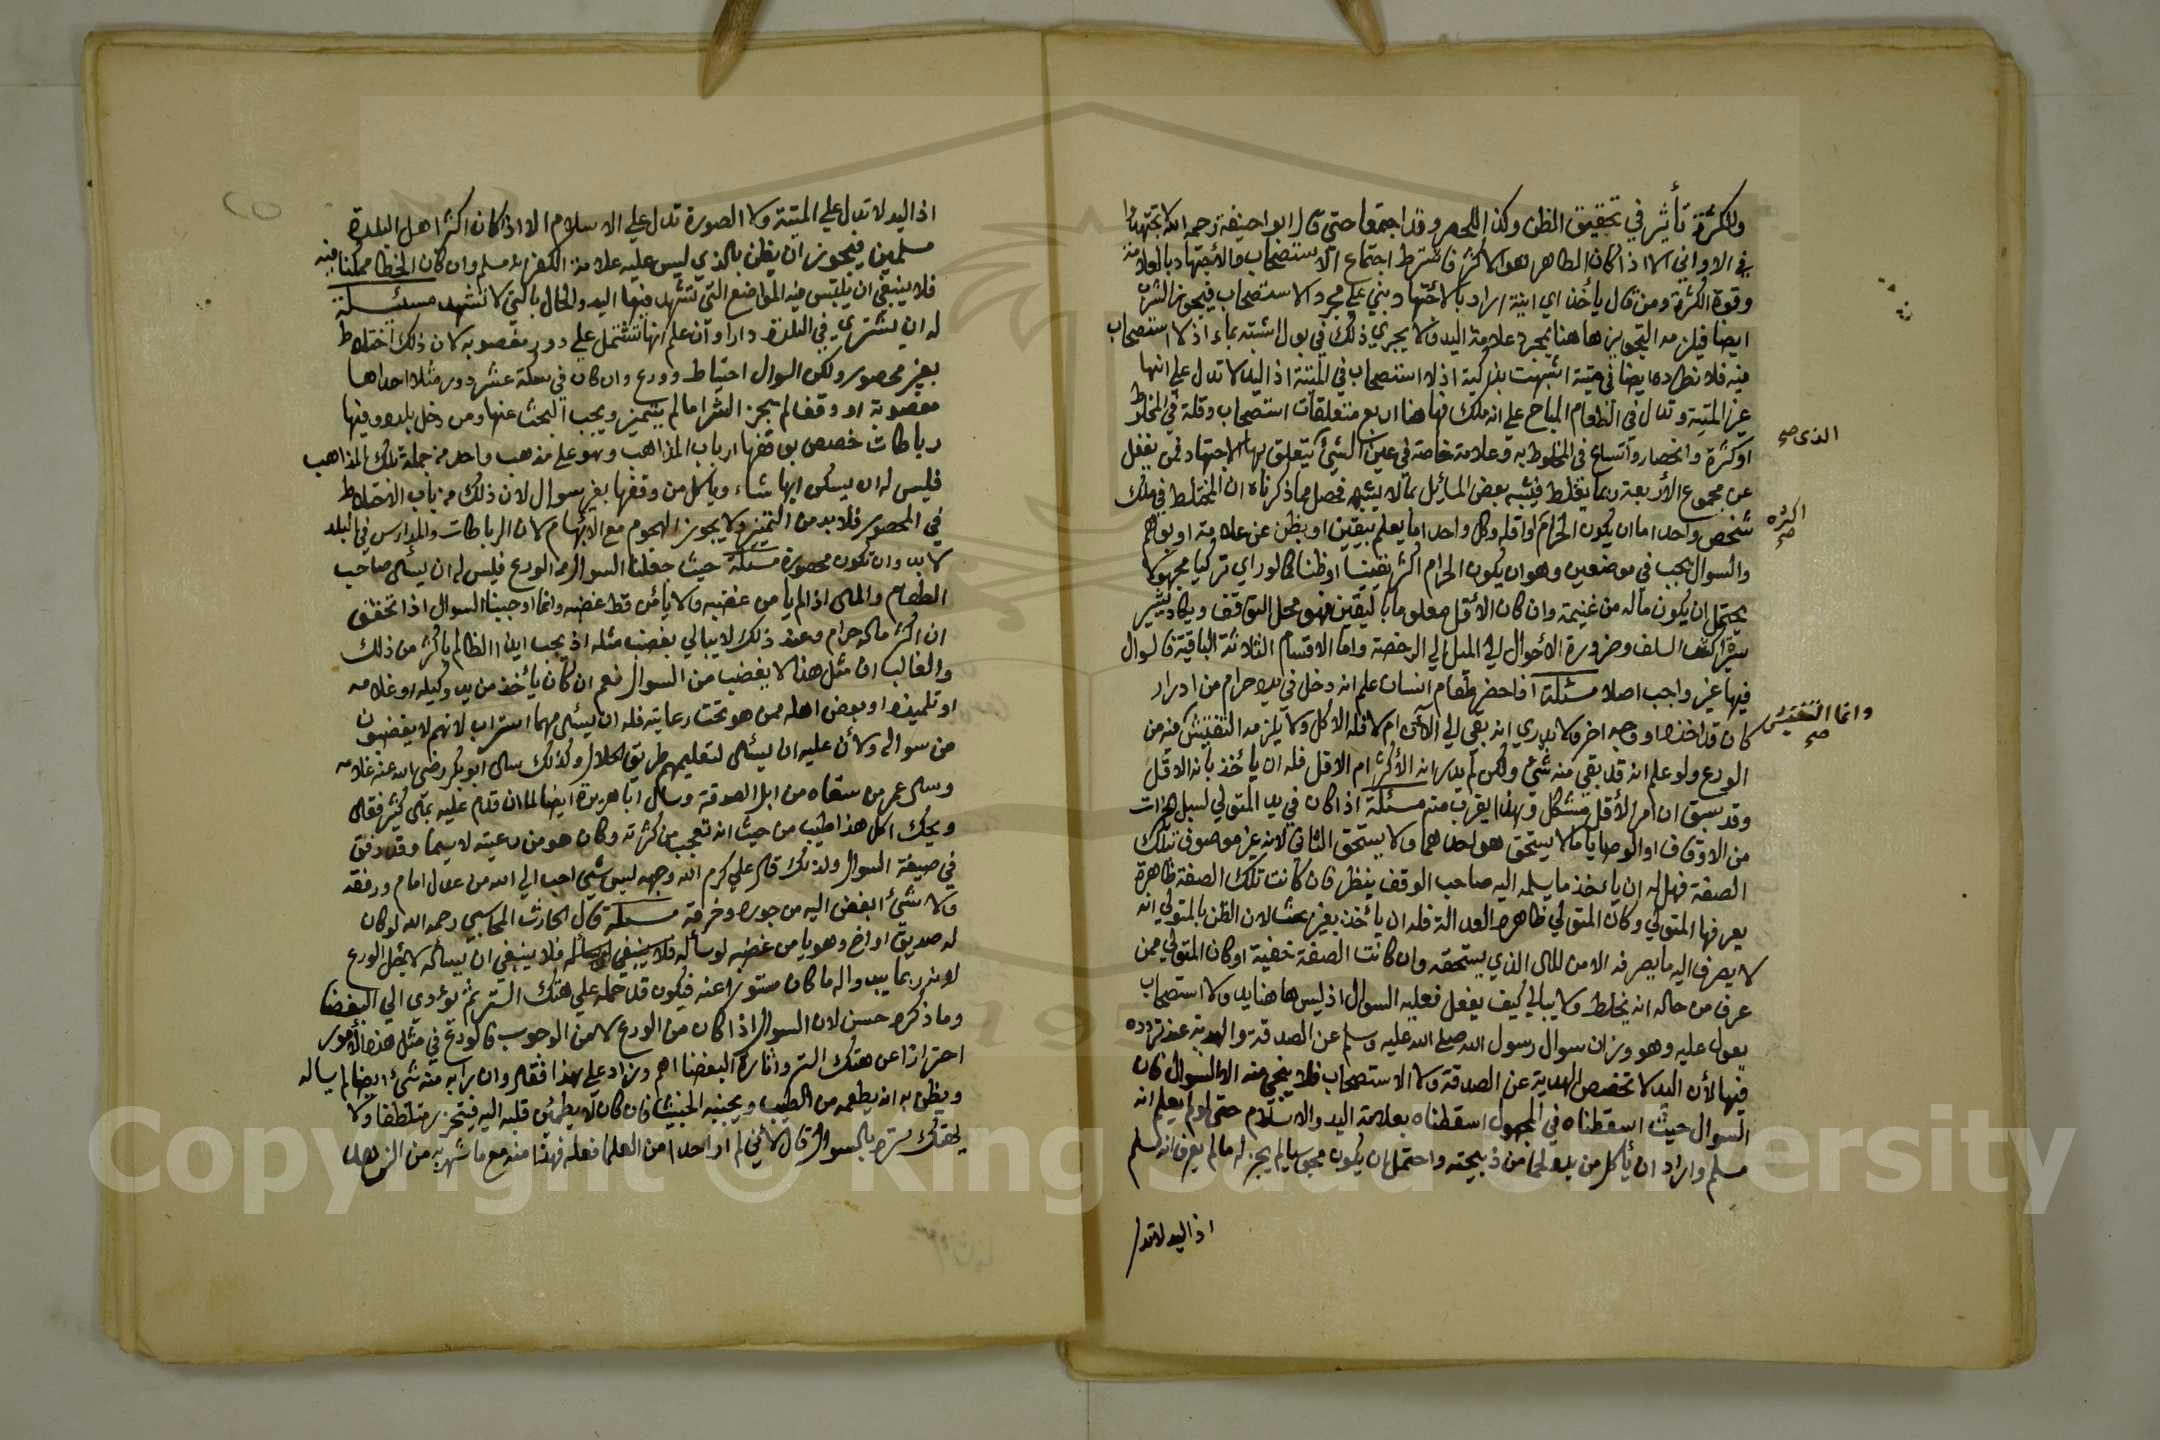 وللكثرة تأثير في تحقيق الظن وكذا للحصر وقد اجتمعا حتى قال ابو حنيفة رحمه الله لا تجتهد
في الاواني الا اذا كان الطاهر هو الاكثر فاشترط اجتماع الاستصحاب والاجتهاد بالعلامة
وقوة الكثرة ومن قال ياخذ اي انية اراد بلا اجتهاد بني على مجرد الاستصحاب فيجوز الشرب
ايضا فيلزمه التجويز هاهنا بمجرد علامة اليد ولا يجري ذلك في بول اشتبه بماء اذ لا استصحاب
فيه فلا نطرده ايضا في ميتة اشتبهت بذكية اذ لا استصحاب في الميتة اذ اليد لا تدل على انها
غير الميتة وتدل في الطعام المباح على انه ملك فهاهنا اربع متعلقات استصحاب وقلة في المخلوط
او كثرة وانحصار واتساع في المخلوط به وعلامة خاصة في عين الشيئ يتعلق بها الاجتهاد فمن يغفل
الذي صح
عن مجموع الأربعة ربما يغلط فيشبه بعض المسائل بما لا يشبهه فحصل مما ذكرناه ان المختلط في ملك
شخص واحد اما ان يكون الحرام او اقله وكل واحد اما يعلم بيقين او بظن عن علامة او بوهم
اكثره صح
والسوال يجب في موضعين وهو ان يكون الحرام اكثر يقينا او ظنا كما لو راي تركيا مجهولا
يحتمل ان يكون ماله من غنيمة وان كان الأقل معلوما باليقين فهو محل التوقف ويكاد تشير
سير اكثر السلف وضرورة الأحوال الى الميل الى الرخصة واما الاقسام الثلاثة الباقية فالسوال
فيها غير واجب اصلا مسئلة اذا حضر طعام انسان علم انه دخل في يده حرام من ادرار
كان قد اخذه او وجه اخر ولا يدري انه بقي الى الآن ام لا فله الاكل ولا يلزمه التفتيش فيه من
وانما التفتيش صح
الورع ولو علم انه قد بقي منه شيئ ولكن لم يدر انه الأكثر ام الاقل فله ان ياخذ بانه الاقل
وقد سبق ان امر الأقل مشكل وهذا يقرب منه مسئلة اذا كان في يد المتولي لسبل الخيرات
من الاوقاف او الوصايا مالا يستحق هو احدهما ولا يستحق الثاني لانه غير موصوف بتلك
الصفة فهل له ان ياخذ ما يسلمه اليه صاحب الوقف ينظر فان كانت تلك الصفة ظاهرة
يعرفها المتولي وكان المتولي ظاهره العدالة فله ان ياخذ بغير بحث لان الظن بالمتولي انه
لا يصرف اليه ما يصرفه الا من المال الذي يستحقه وان كانت الصفة خفية او كان المتولي ممن
عرف من حاله انه يخلط ولا يبالي كيف يفعل فعليه السوال اذ ليس هاهنا يد ولا استصحاب
يعول عليه وهو وزان سوال رسول الله صلى الله عليه وسلم عن الصدقة والهدية عند تردده
فيها لأن اليد لا تخصص الهدية عن الصدقة ولا الاستصحاب فلا ينجي منه الا السوال فان
السوال حيث اسقطناه في المجهول اسقطناه بعلامة اليد والاسلام حتى لو لم يعلم انه
مسلم واراد ان يأكل من يده لحما من ذبيحته واحتمل ان يكون مجوسيا لم يجز له مالم يعرف انه مسلم
اذ اليد لا تدل
اذ اليد لا تدل على الميتة ولا الصورة تدل على الاسلام الا اذا كان اكثر اهل البلدة
مسلمين فيجوز ان يظن بالذي ليس عليه علامة الكفر انه مسلم وان كان الخطا ممكنا فيه
فلا ينبغي ان يلتبس فيه المواضع التي تشهد فيها اليد والحال بالتي لا تشهد مسئلة
له ان يشتري في البلدة دارا وان علم انها تشتمل على دور مغصوبه لان ذلك اختلاط
بغير محصور ولكن السوال احتياط وورع وان كان في سكة عشر دور مثلا احداها
مغصوبة او وقف لم يجز الشرا مالم يتميز ويجب البحث عنها ومن دخل بلدة وفيها
رباطات خصص بوقفها ارباب المذاهب وهو على مذهب واحد من جملة تلك المذاهب
فليس له ان يسكن ايها شاء وياكل من وقفها بغير سوال لان ذلك من باب الاختلاط
في المحصور فلا بد من التميز ولا يجوز الهجوم مع الابهام لان الرباطات والمدارس في البلد
لا بد وان تكون محصورة مسئلة حيث جعلنا السوال من الورع فليس له ان يسئل صاحب
الطعام والمال اذا لم يأمن غضبه ولا يأمن قط غضبه وانما اوجبنا السوال اذا تحقق
ان اكثر ماله حرام وعند ذلك لا يبالي بغضب مثله اذ يجب ايذاء الظالم باكثر من ذلك
والغالب ان مثل هذا لا يغضب من السوال نعم ان كان يأخذ من يد وكيله او غلامه
او تلميذه او بعض اهله ممن هو تحت رعايته فله ان يسئل مهما استراب لانهم لا يغضبون
من سواله ولأن عليه ان يسئل لتعليمهم طريق الحلال وكذلك سال ابو بكر رضي الله عنه غلامه
وسال عمر من سقاه من ابل الصدقة وسال ابا هريرة ايضا لما ان قدم عليه بمال كثير فقال
ويحك اكل هذا طيب من حيث انه تعجب من كثرته وكان هو من رعيته لا سيما وقد رفق
في صيغة السوال ولذلك قال علي كرم الله وجهه ليس شيئ احب الى الله من عدل امام ورفقه
ولا شيئ ابغض اليه من جوره وخرقه مسئلة قال الحارث المحاسبي رحمه الله لو كان
له صديق او اخ وهو يامن غضبه لو سأله فلا ينبغي ان يسأله لاجل الورع
لانه ربما يبدو اله ما كان مستورا عنه فيكون قد حمله على هتك الستر ثم يؤدي الى البغضا
وما ذكره حسن لان السوال اذا كان من الورع لا من الوجوب فالورع في مثل هذه الأمور
احترازا عن هتك الستر واثارة البغضا اهم وزاد على هذا فقال وان رابه منه شيئ ايضا لم يساله
ويظن به انه يطعمه من الطيب ويجنبه الخبيث فان كان لا يطمئن قلبه اليه فيتحرز متلطفا ولا
يهتك ستره بالسوال قال لأني لم ار احدا من العلما فعله فهذا منه مع ما شهر به من الزهد
Copyright © King Saud University